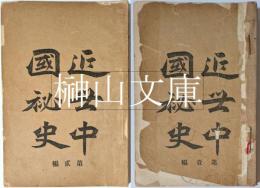 近世中
國祕史
第貳編
近世中
國祕史
第壹編
榊山文庫